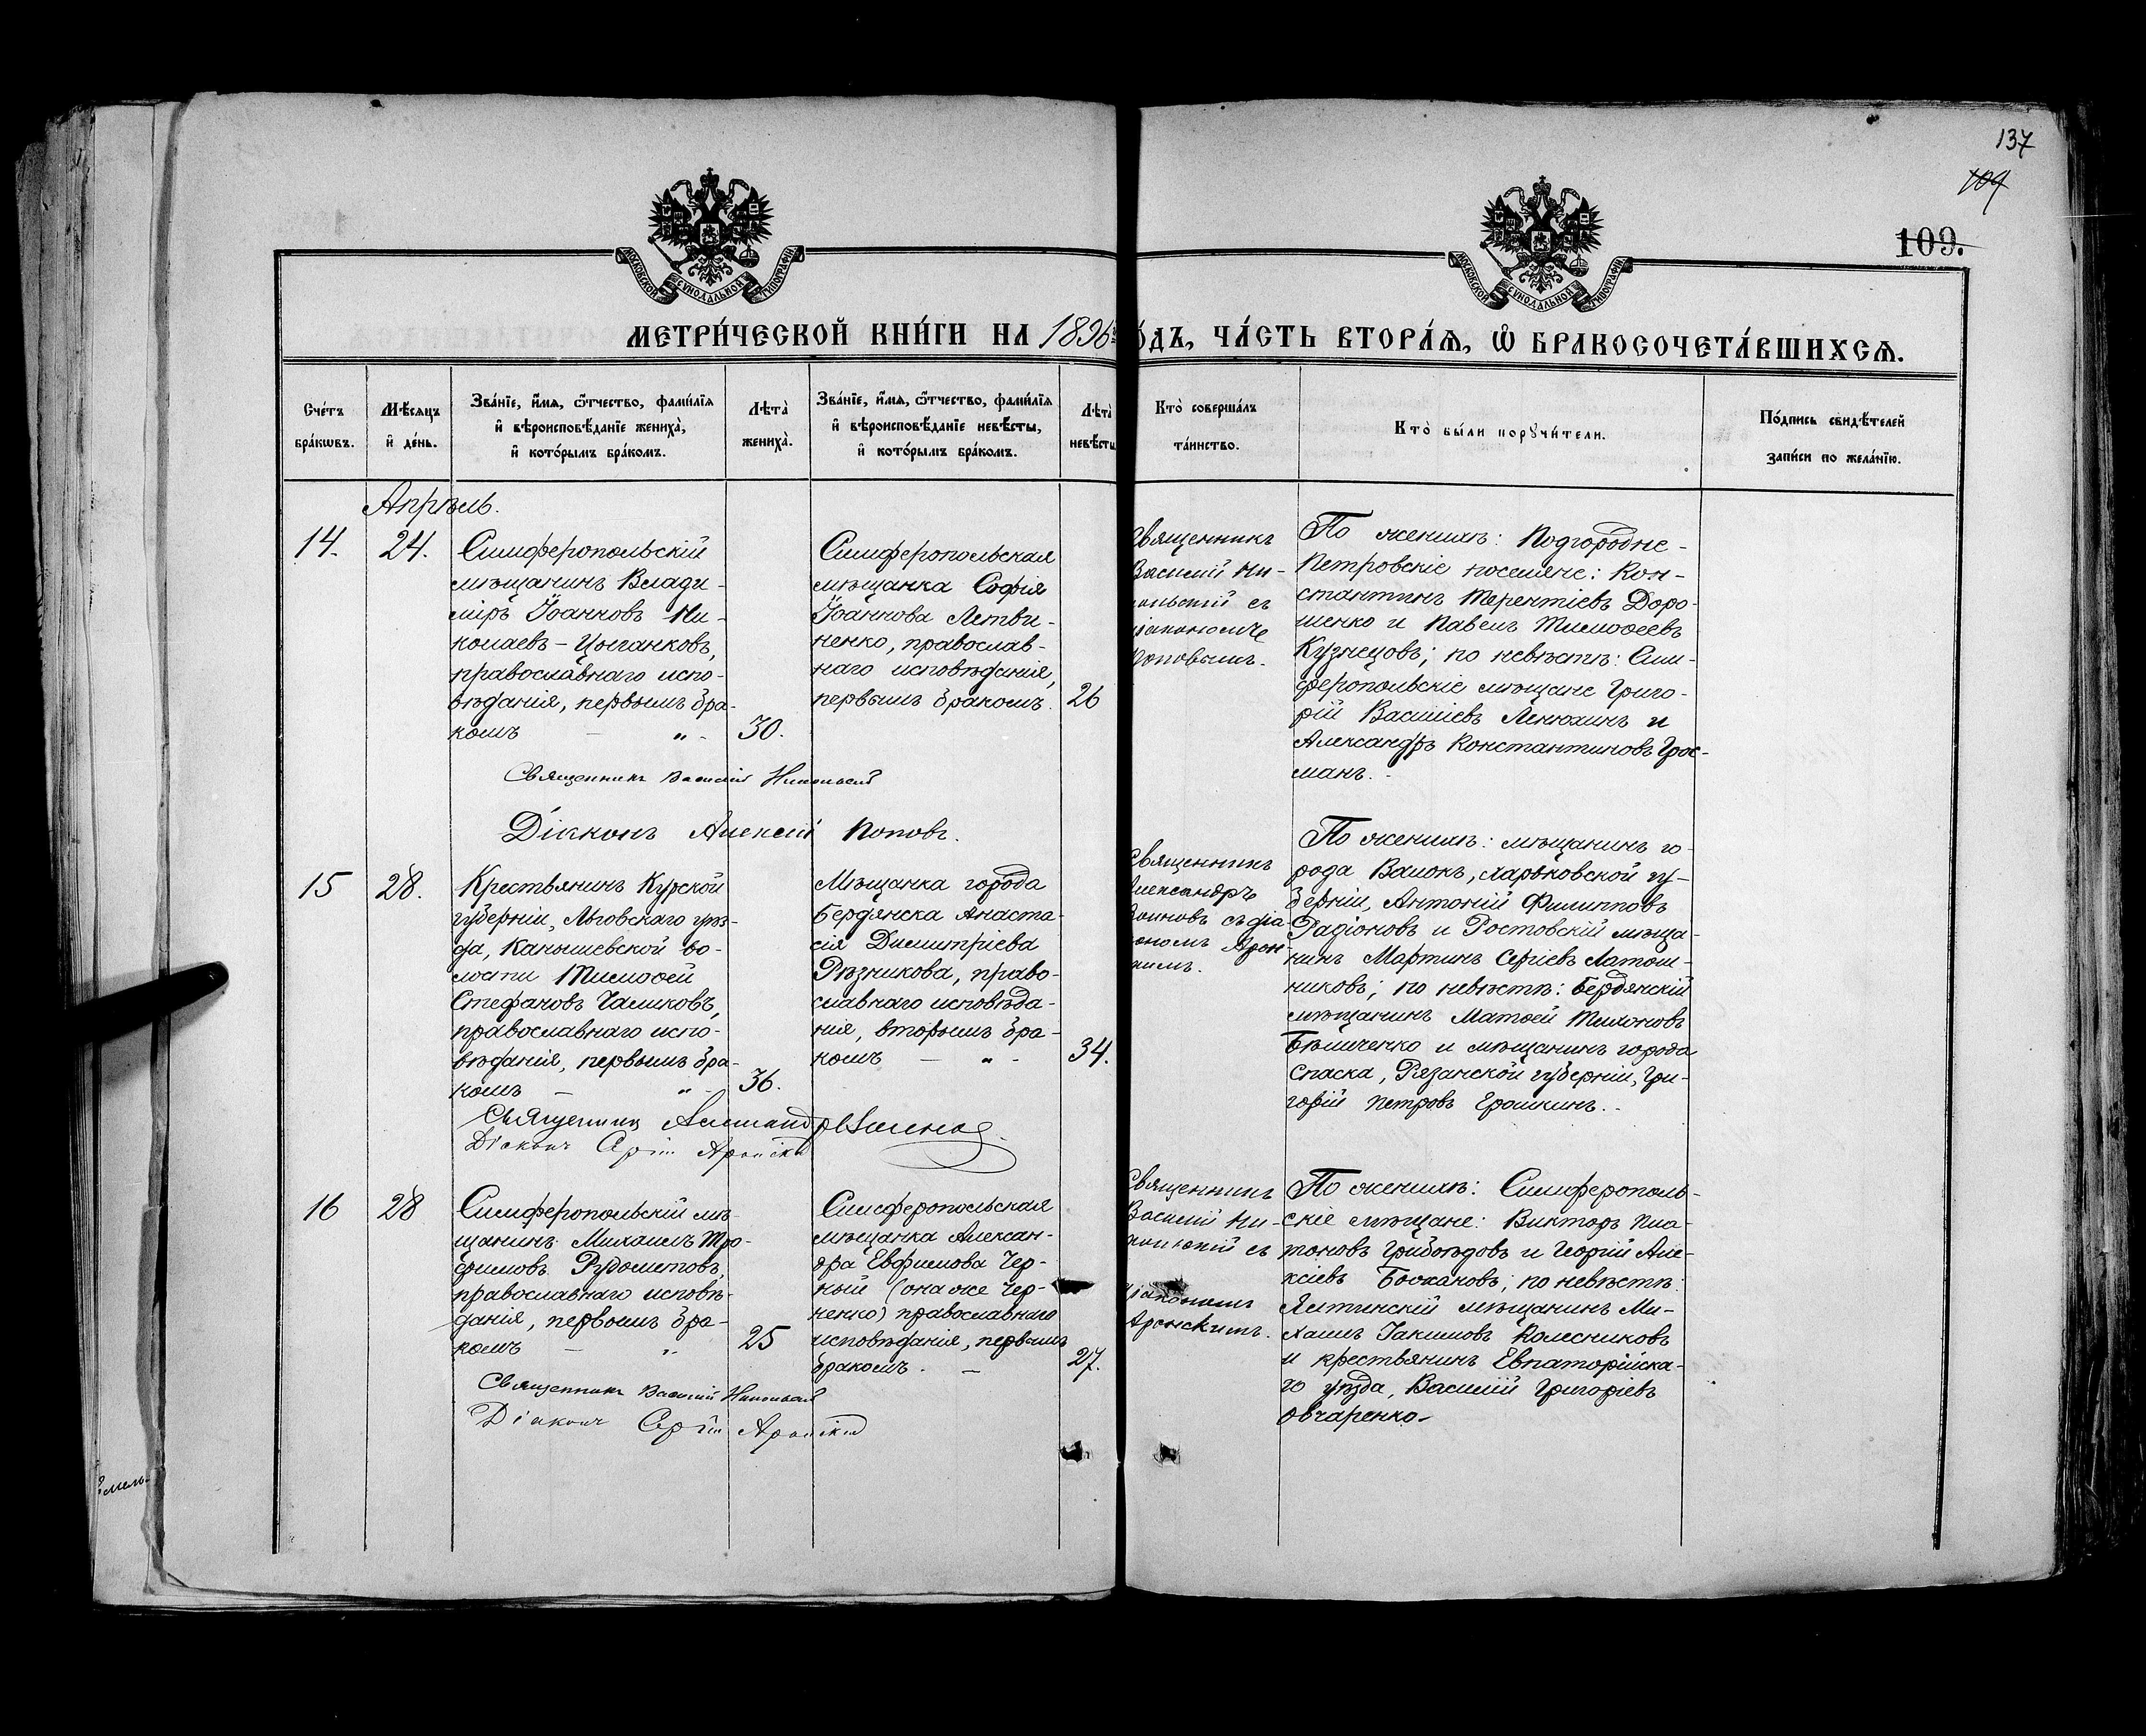 137
109
109.
МОСКОВСКОЙ СѴНОДАЛЬНОЙ ТИПОГРАФІИ
МОСКОВСКОЙ СѴНОДАЛЬНОЙ ТИПОГРАФІИ
МЕТРИ́ЧЕСКОЙ КНИ́ГИ НА 1896 го́дъ, ЧА́СТЬ ВТОРА́Я, Ѡ҆ БРАКОСОЧЕТА́ВШИХСЯ.
Сче́тъ
бра́кѡвъ.
Мѣ́сяцъ
и҆ де́нь.
Зва́нїе, и҆́мя, ѻ҆́тчество, фами́лїя
и҆ вѣроисповѣ́данїе жениха̀,
и҆ кото́рымъ бра́комъ.
Лѣта̀
жениха̀.
Зва́нїе, и҆́мя, ѻ҆́тчество, фами́лїя
и҆ вѣроисповѣ́данїе невѣ́сты,
и҆ кото́рымъ бра́комъ.
Лѣта̀
невѣ́сты
Кто̀ соверша́лъ
та́инство.
Кто̀ бы́ли порꙋчи́тели.
По́дпись свидѣ́телей
за́писи по жела́нїю.
Апрѣль.
14.
24.
Симферопольскій
мѣщанинъ Влади-
міръ Іоанновъ Ни-
колаевъ-Цыганковъ,
православнаго испо-
вѣданія, первымъ бра-
комъ — „ -
30.
Симферопольская
мѣщанка Софія
Іоаннова Литви-
ненко, православ-
наго исповѣданія,
первымъ бракомъ.
26
Священникъ
Василій Ни-
кольскій съ
діакономъ
Поповымъ.
По женихѣ: Подгородне-
Петровскіе поселяне: Кон-
стантинъ Терентіевъ Доро-
шенко и Павелъ Тимоѳеевъ
Кузнецовъ; по невѣстѣ: Сим-
феропольскіе мѣщане Григо-
рій Василіевъ Ленюхинъ и
Александръ Константиновъ Грос-
манъ.
Священникъ Василій Никольскій
Діаконъ Алексій Поповъ.
15
28.
Крестьянинъ Курской
губерніи, Льговскаго уѣз-
да, Канышевской во-
лости Тимоѳей
Стефановъ Чаликовъ,
православнаго испо-
вѣданія, первымъ бра-
комъ — „ -
36.
Мѣщанка города
Бердянска Анаста-
сія Димитріева
Рѣзникова, право-
славнаго исповѣда-
нія, вторымъ бра-
комъ — „ -
34.
Священникъ
Александръ
съ діа-
кономъ Арон-
скимъ.
По женихѣ: мѣщанинъ го-
рода Валокъ, Харьковской гу-
берніи, Антоній Филипповъ
Радіоновъ и Ростовскій мѣща-
нинъ Мартинъ Сергіевъ Латош-
никовъ; по невѣстѣ: Бердянскій
мѣщанинъ Матѳей Тихоновъ
Бѣличенко и мѣщанинъ города
Спаска, Рязанской губерніи, Гри-
горій Петровъ Ерошкинъ.
Священникъ Александръ
Діаконъ Сергій Аронскій
16
28
Симферопольскій мѣ-
щанинъ Михаилъ Тро-
фимовъ Рудометовъ,
православнаго исповѣ-
данія, первымъ бра-
комъ — „
25
Симферопольская
мѣщанка Алексан-
дра Евфимова Чер-
ный (она же Чер-
ненко) православнаго
исповѣданія, первымъ
бракомъ. —
27.
Священникъ
Василій Ни-
кольскій съ
діакономъ
Аронскимъ.
По женихѣ: Симферополь-
скіе мѣщане: Викторъ Пла-
тоновъ Грибоѣдовъ и Георгій Але-
ксіевъ Бочкановъ; по невѣстѣ:
Ялтинскій мѣщанинъ Ми-
хаилъ Іакимовъ Колесниковъ
и крестьянинъ Евпаторійска-
го уѣзда, Василій Григоріевъ
Овчаренко.
Священникъ Василій Никольскій
Діаконъ Сергій Аронскій